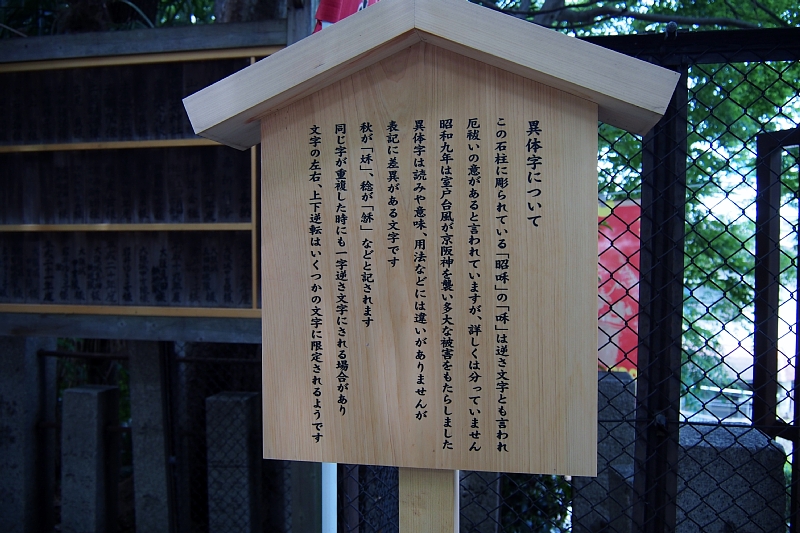 異体字について
この石柱に彫られている「昭咊」の「咊」は逆さ文字とも言われ
厄祓いの意があると言われていますが、詳しくは分っていません
昭和九年は室戸台風が京阪神を襲い多大な被害をもたらしました
異体字は読みや意味、用法などには違いがありませんが
表記に差異がある文字です
秋が「秌」、稔が「䄒」などと記されます
同じ字が重複した時にも一字逆さ文字にされる場合があり
文字の左右、上下逆転はいくつかの文字に限定されるようです